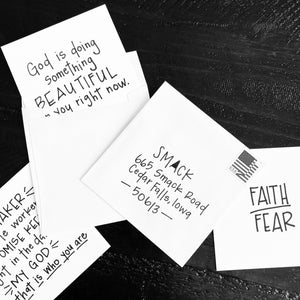 God is doing
something
BEAUTIFUL
in you right now.
SMACK
665 Smack Road
Cedar Falls, Iowa
— 50613 —
FAITH
FEAR
MAKER
MY GOD
that is who you are